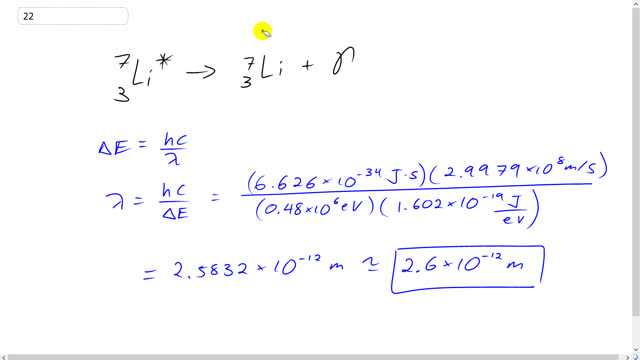 22
⁷₃Li* → ⁷₃Li + γ
ΔE = hc/λ
λ = hc/ΔE = (6.626×10⁻³⁴ J·s)(2.9979×10⁸ m/s) / (0.48×10⁶ eV)(1.602×10⁻¹⁹ J/eV)
= 2.5832×10⁻¹² m ≃ 2.6×10⁻¹² m